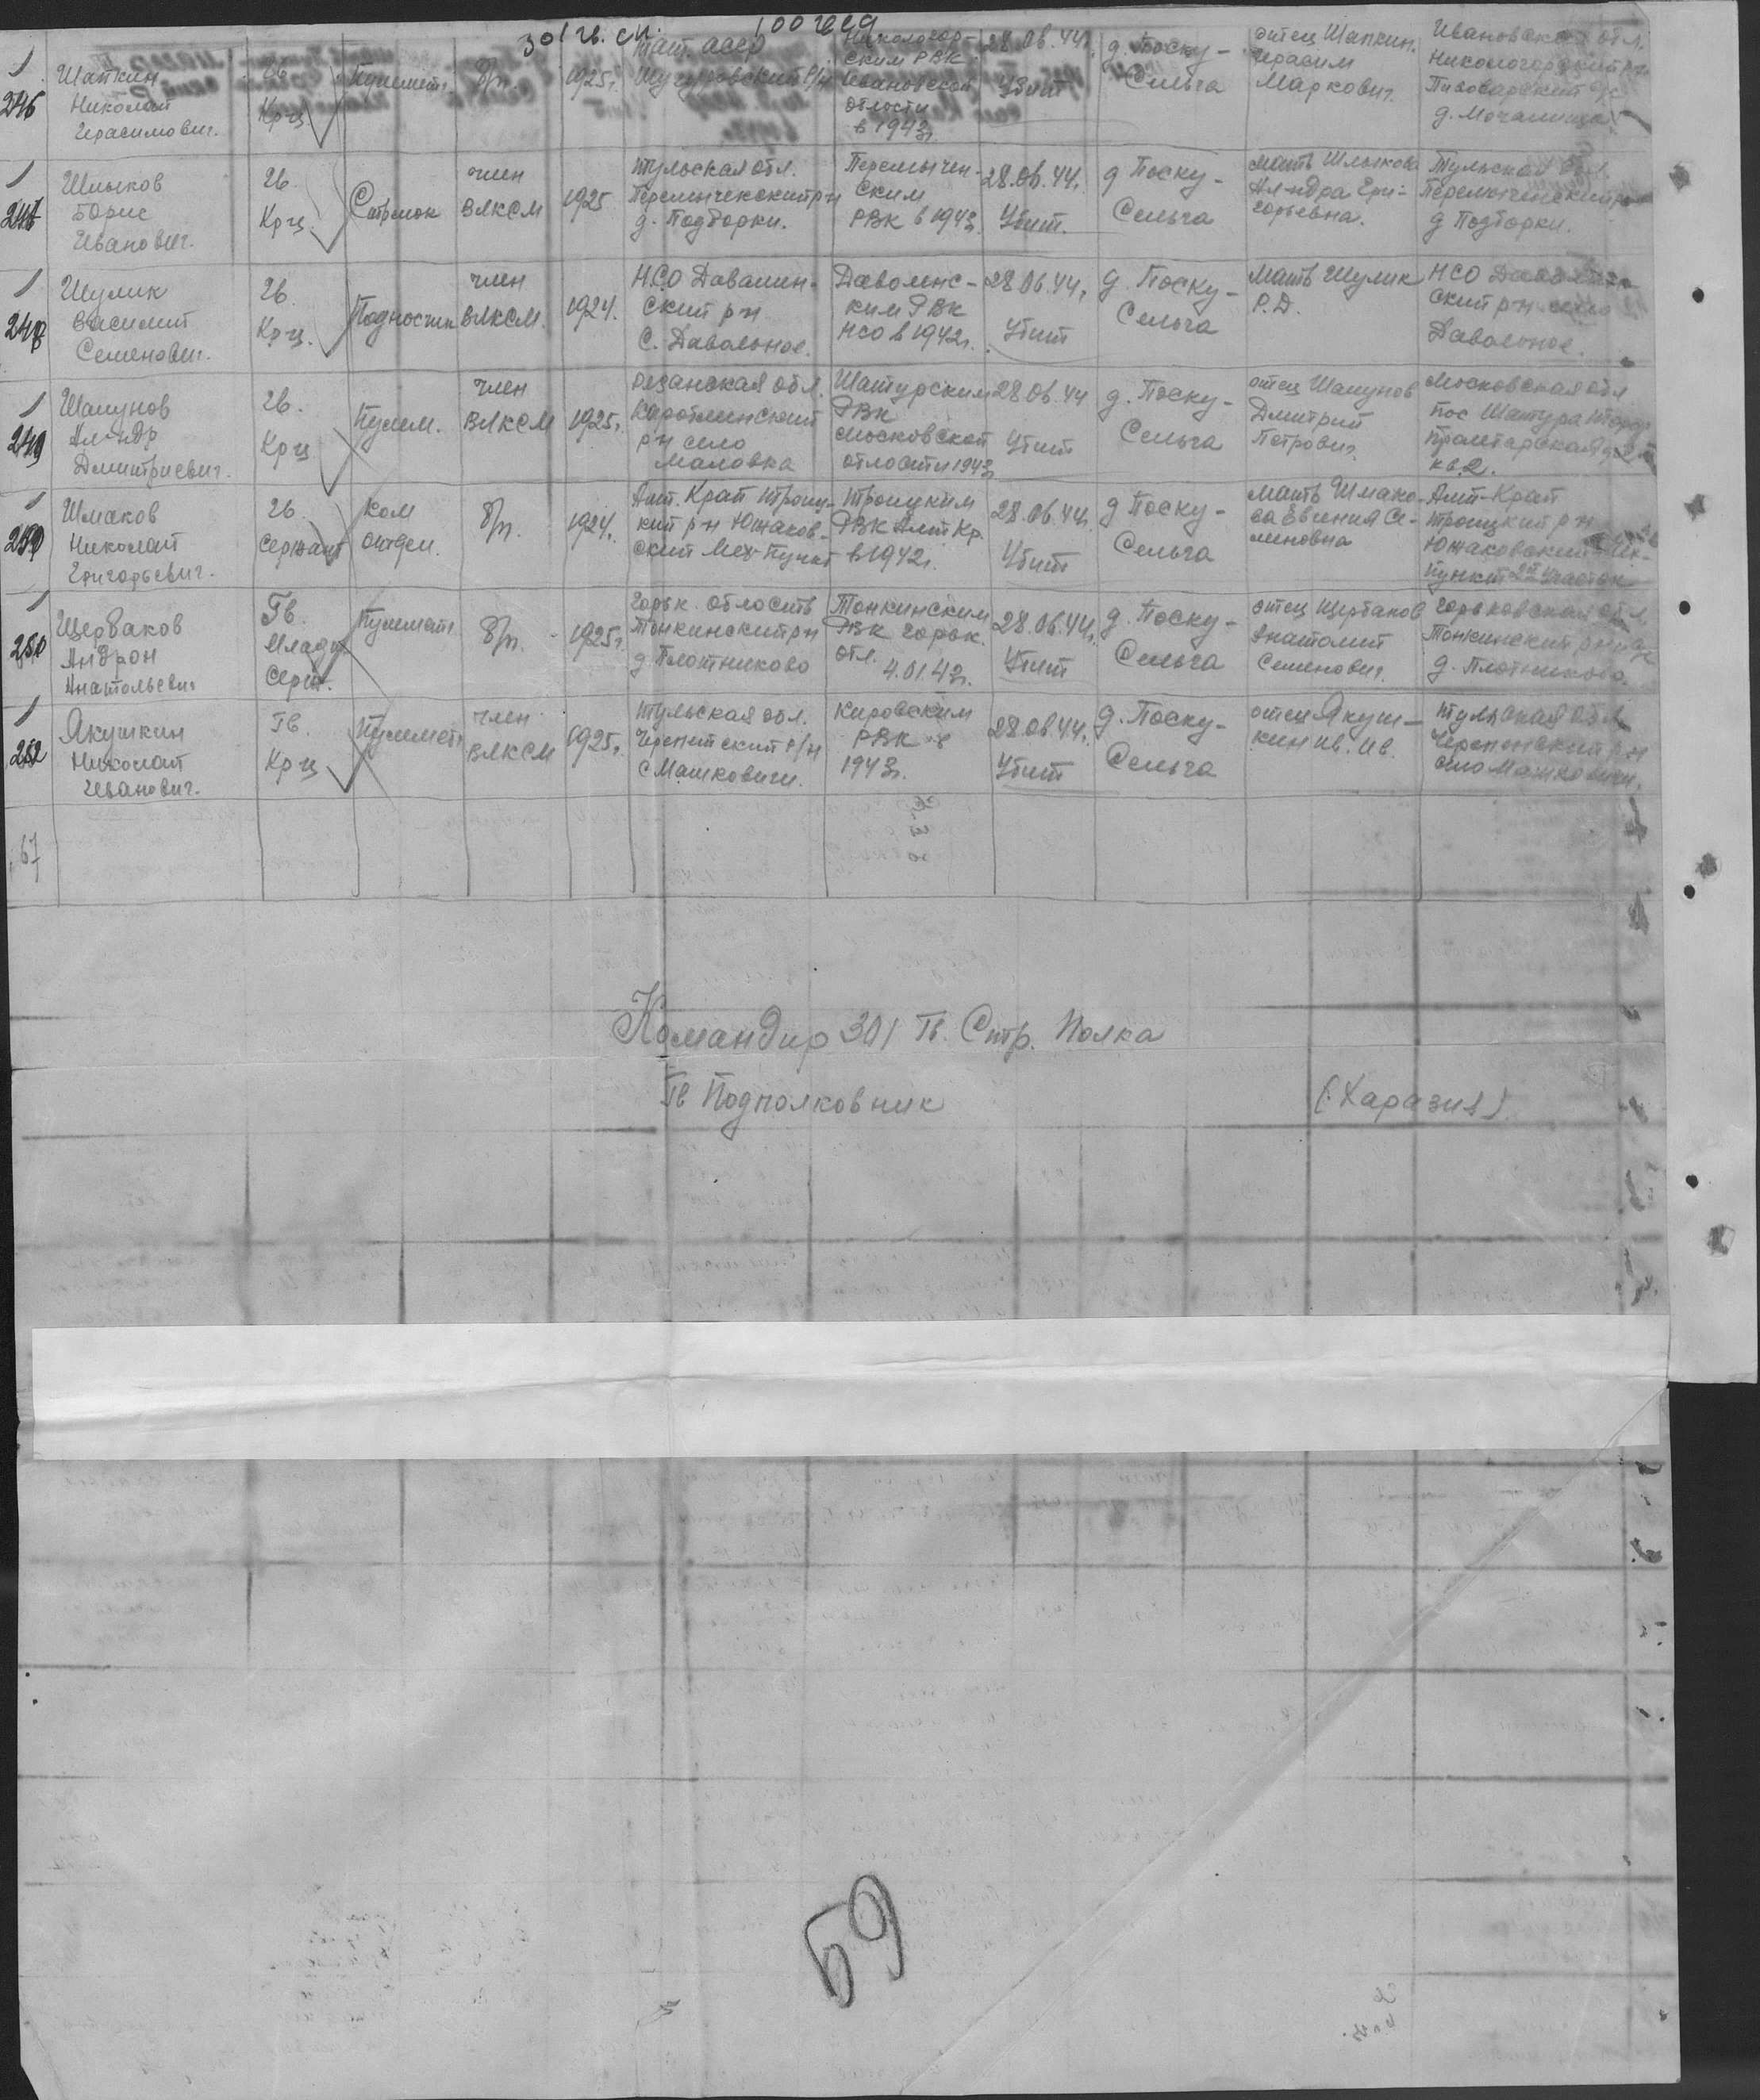 301 гв. сп. 100 гсд
1
246
Шапкин
Николай
Герасимович.
Гв
Кр-ц
Пулемет.
б/п.
1925г.
Тат. асср
Шугуровский р/н
Никологор-
ским РВК
Ивановской
области
в 1943г.
28.06.44г.
Убит
д. Поску-
Сельга
отец Шапкин.
Герасим
Маркович.
Ивановская обл.
Никологорский р-н
д. Мочалища
1
Шлыков
Борис
Иванович.
Гв.
Кр-ц.
Стрелок
член
ВЛКСМ
1925
Тульская обл.
д. Подборки.
Перемычен-
ским
РВК в 1943г.
28.06.44.
Убит.
д Поску-
Сельга
мать Шлыкова
Ал-ндра Гри-
горьевна.
Тульская обл.
д Подборки.
1
Шулик
Василий
Семенович.
Гв.
Кр-ц.
Подносчик
член
ВЛКСМ.
1924.
НСО Даволин-
ский р-н
С. Давольное.
Даволенс-
ким РВК
НСО в 1942г.
28.06.44.
Убит
д. Поску-
Сельга
мать Шулик
Р.Д.
НСО
ский р-н село
Давольное.
1
249
Шапунов
Ал-ндр
Дмитриевич.
Гв.
Кр-ц
Пулем.
член
ВЛКСМ
1925г.
Рязанская обл.
р-н село
Маловка
Шатурским
РВК
Московской
области 1943г
28.06.44
Убит
д. Поску-
Сельга
отец Шапунов
Дмитрий
Петрович.
Московская обл
пос Шатура
кв. 2.
1
Шмаков
Николай
Григорьевич.
Гв.
Сержант
Ком
отдел.
б/п.
1924г.
Алт. Край Троиц-
кий р-н Южаков-
ский Мех-пункт
Троицким
РВК Алт Кр.
в 1942г.
28.06.44г.
Убит
д Поску-
Сельга
мать Шмако-
ва Евгения Се-
меновна
Алт-Край
Троицкий р-н
Южаковский Мех-
пункт 2й участок
1
250
Щербаков
Андрон
Анатольевич
Гв.
Младш
Серж.
Пулемет.
б/п.
1925г.
Горьк. область
Тонкинский р-н
д Плотниково
Тонкинским
РВК Горьк.
обл. 4.01.43г.
28.06.44г.
Убит
д. Поску-
Сельга
отец Щербаков
Анатолий
Семенович.
Горьковская обл.
Тонкинский р-н
д. Плотниково.
1
252
Якушкин
Николай
Иванович.
Гв.
Кр-ц
Пулемет.
член
ВЛКСМ
1925г.
Тульская обл.
с Машковичи.
Кировским
РВК в
1943г.
28.06.44г.
Убит
д. Поску-
Сельга
отец Якуш-
кин Ив. Ив.
Тульская обл
село Машковичи.
67
Командир 301 Гв. Стр. Полка
Гв Подполковник (Харазия)
59